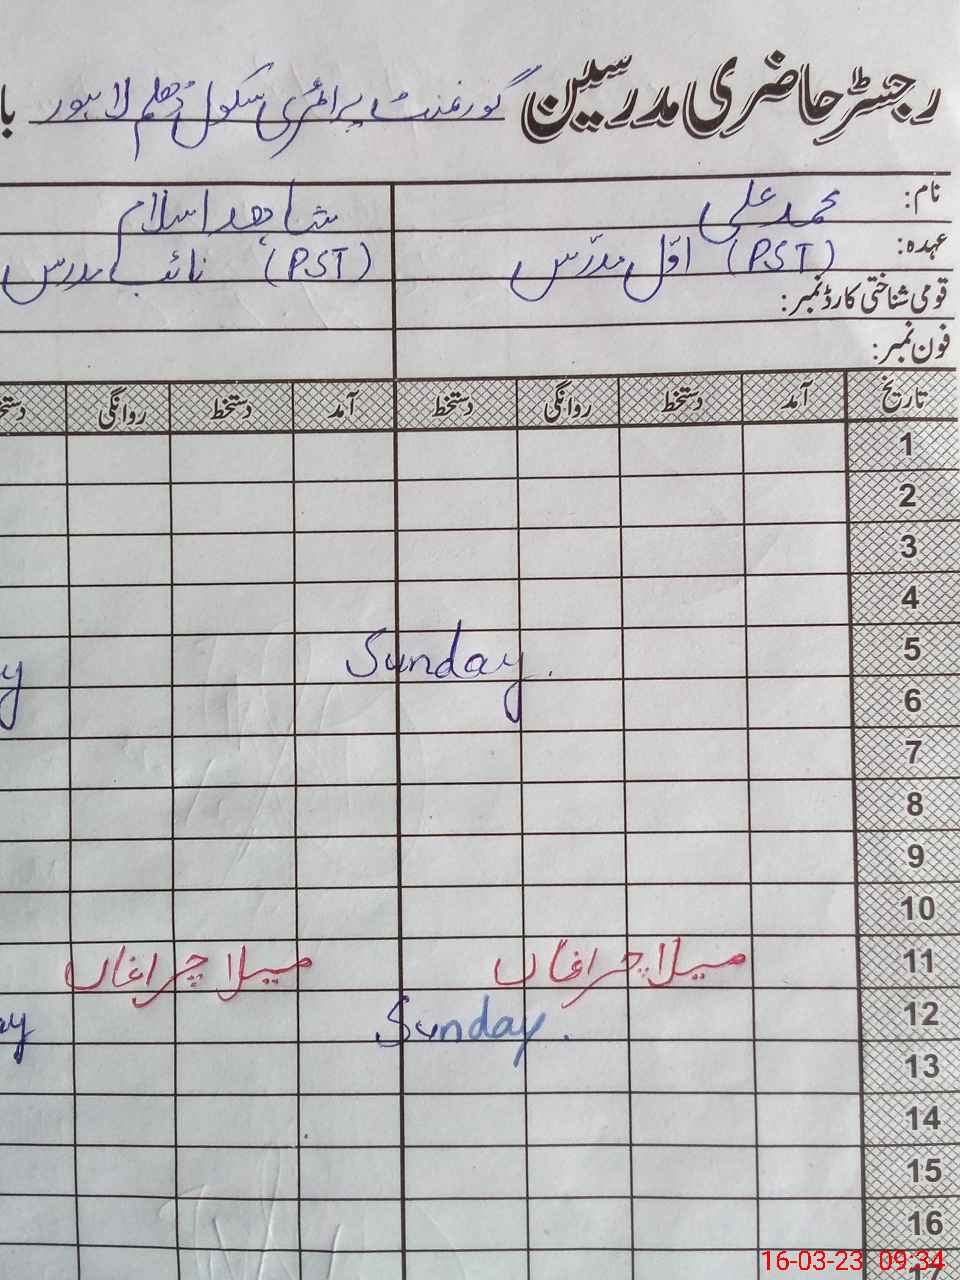 رجسٹر حاضری مدرسین گورنمنٹ پرائمری سکول ڈھلم لاہور با
نام: محمد علی شاہد اسلام
عہدہ: (PST) اوّل مدرّس (PST) نائب مدرس
قومی شناختی کارڈ نمبر:
فون نمبر:
تاریخ آمد دستخط روانگی دستخط آمد دستخط روانگی
1
2
3
4
5 Sunday.
6
7
8
9
10
11 میلا چراغاں میلا چراغاں
12 Sunday.
13
14
15
16
17
16-03-23 09:34